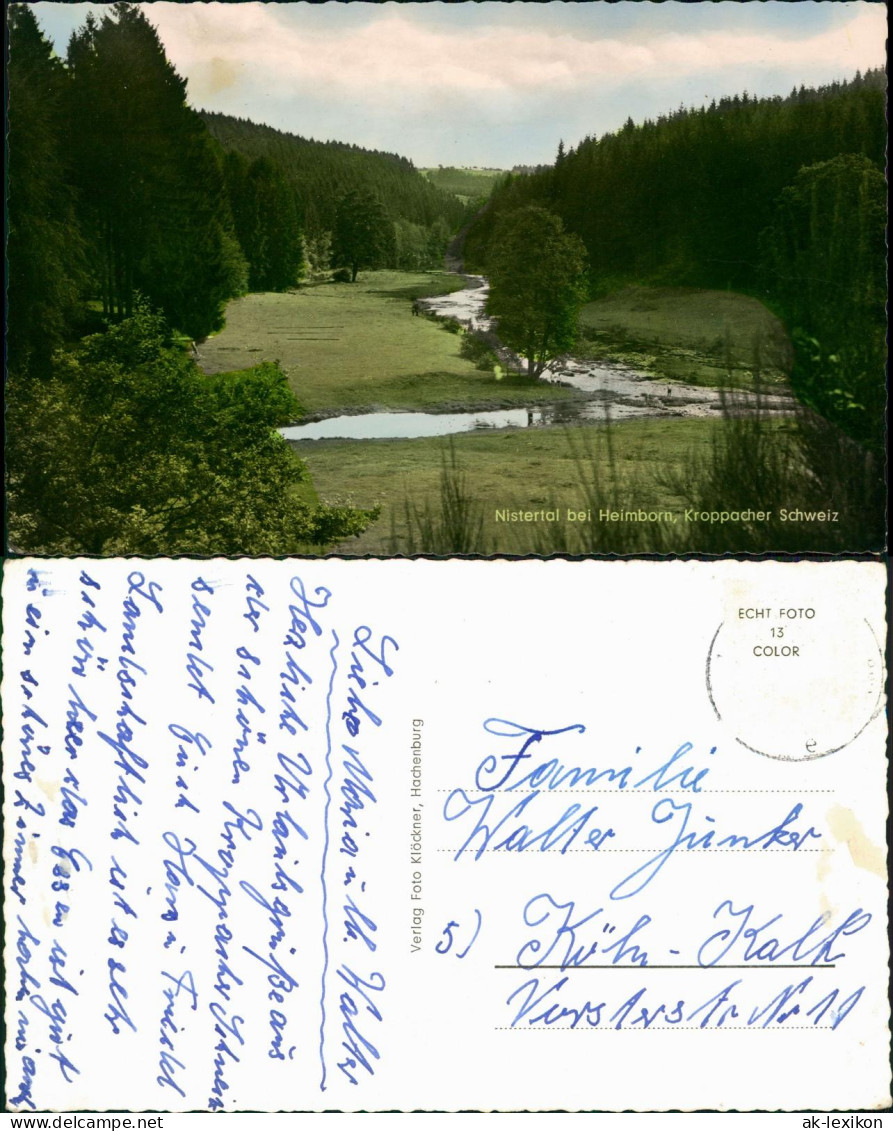 Nistertal bei Heimborn, Kroppacher Schweiz
Liebe Maria u. lb. Walter
Herzliche Urlaubsgrüße aus
der schönen Kroppacher Schweiz
sendet Euch Hans u. Friedel
Landschaftlich ist es sehr
schön hier das Essen ist gut
ein schönes Zimmer haben wir auch
Verlag Foto Klöckner, Hachenburg
ECHT FOTO
13
COLOR
Familie
Walter Junker
5) Köln-Kalk
Vorsterstr Nr 11
delcampe.net
ak-lexikon